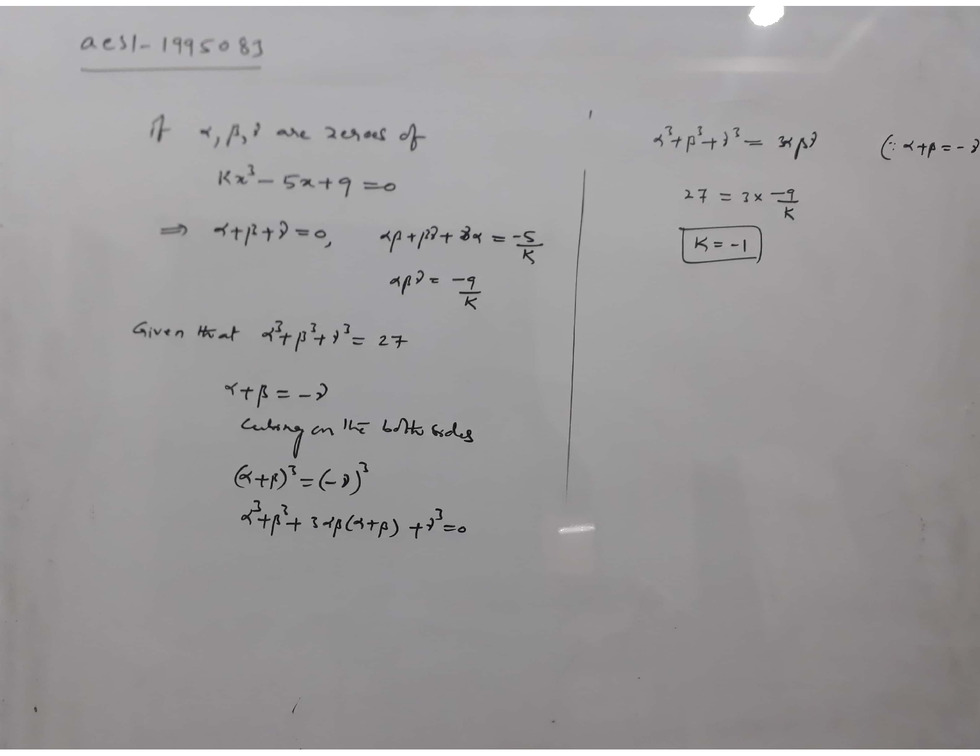 aesl-1995083
if α, β, γ are zeroes of
Kx³ - 5x + 9 = 0
⇒ α+β+γ = 0, αβ + βγ + γα = -5/K
αβγ = -9/K
Given that α³+β³+γ³ = 27
α+β = -γ
Cubing on the both sides
(α+β)³ = (-γ)³
α³+β³+ 3αβ(α+β) + γ³ = 0
α³+β³+γ³ = 3αβγ (∵ α+β = -γ
27 = 3 × -9/K
K = -1